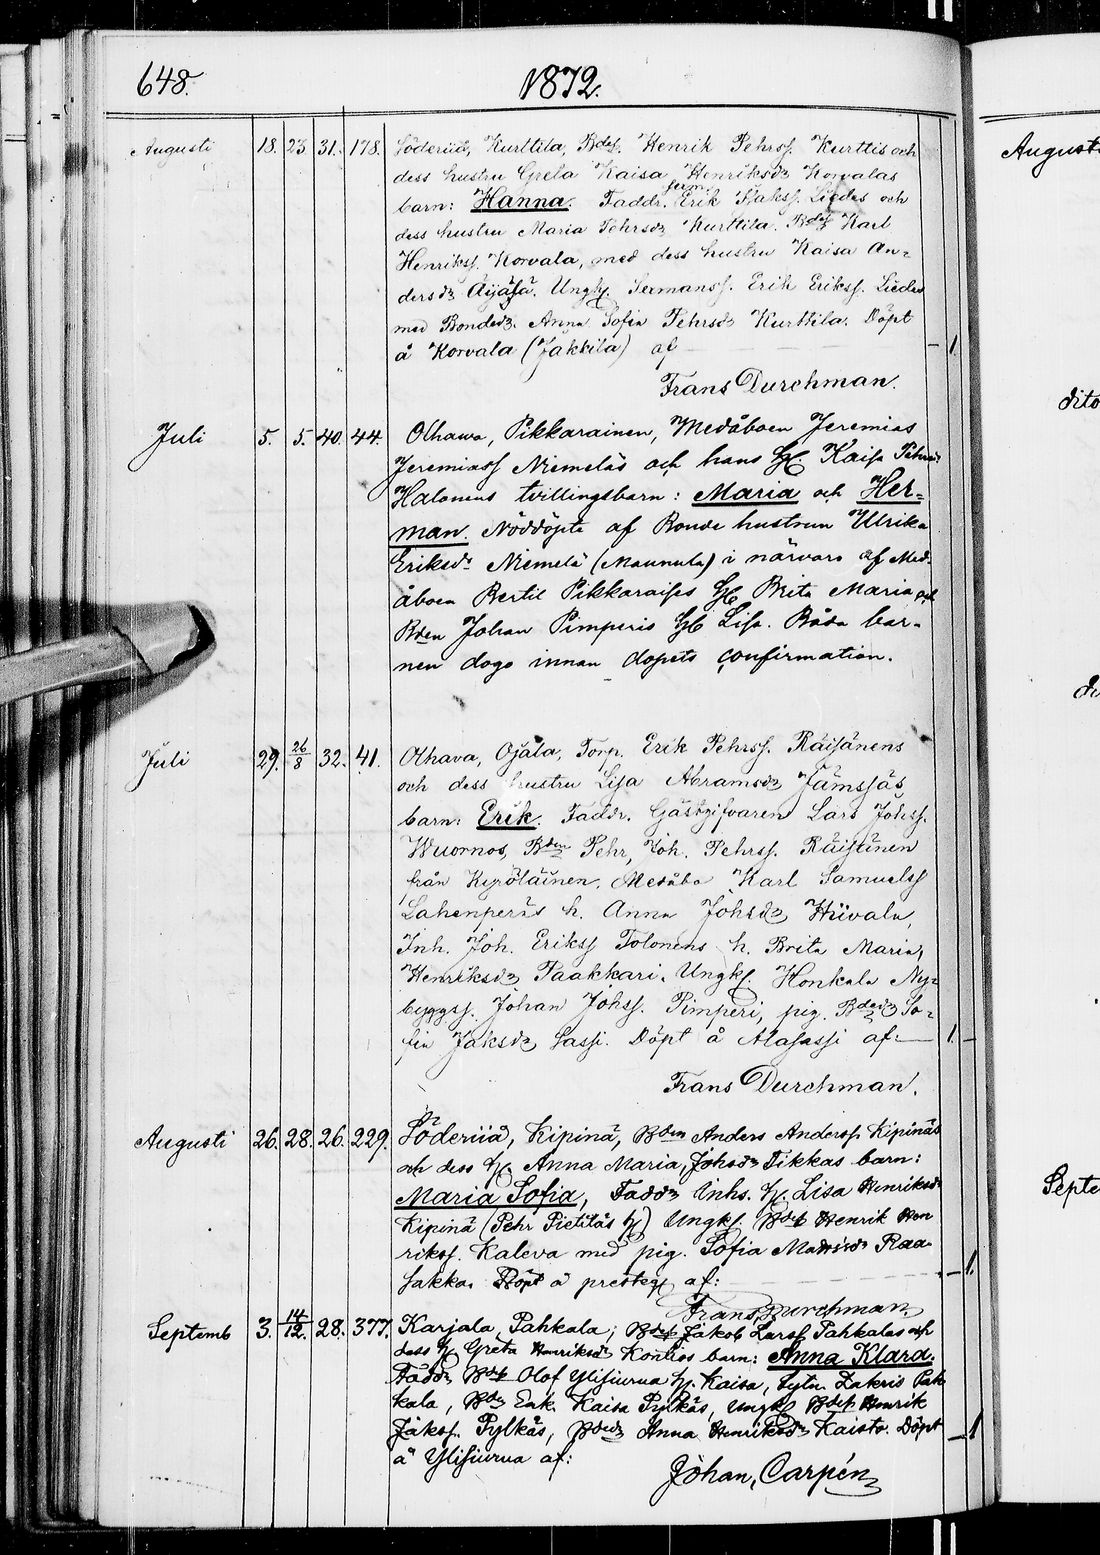 648. 1872.
Augusti 18. 23. 31. 178. Söderiid, Kurttila, Bdes. Henrik Pehrss. Kurttis och
dess hustru Greta Kaisa Henriksdr Korvalas
barn: Hanna. Faddr. Serm. Erik Isakss. Liedes och
dess hustru Maria Pehrsdr Kurttila. Bdes. Karl
Henrikss. Korvala, med dess hustru Kaisa An-
dersdr Äijälä. Ungk. Sermanss. Erik Erikss. Liedes
med Bondedr. Anna Sofia Pehrsdr Kurttila. Döpt
å Korvala (Jakkila) af 1.
Frans Durchman.
Juli 5. 5. 40. 44. Olhawa, Pikkarainen, Medåboen Jeremias
Jeremiass Niemeläs och hans H. Kaisa Pehrsd:
Halonens tvillingsbarn: Maria och Her-
man. Nöddöpte af Bonde hustrun Ulrika
Eriksdr Niemelä (Maunula) i närvaro af Med-
åboen Bertil Pikkaraises H. Brita Maria och
Bden Johan Pimperis H. Lisa. Båda bar-
nen dogo innan dopets confirmation.
Juli 29. 26/8 32. 41. Olhava, Ojala, Torp. Erik Pehrss. Räisänens
och dess hustru Lisa Abramsdr Jämsäs
barn: Erik. Faddr. Gästgifvaren Lars Johss.
Wuornos, Bden Pehr, Joh. Pehrss. Räisänen
från Kyröläinen. Medåbo Karl Samuelss
Lahenperäs h. Anna Johsdr Hiivala,
Inh. Joh. Erikss Tolonens h. Brita Maria,
Henriksdr Paakkari. Ungk. Honkala Ny-
byggss. Johan Johss. Pimperi, pig. Bdedr So-
fia Jaksdr Sassi. Döpt å Alasassi af: 1.
Frans Durchman.
Augusti 26. 28. 26. 229. Söderiid, Kipinä, Bden Anders Anderss. Kipinäs
och dess h. Anna Maria, Johsdr Tikkas barn:
Maria Sofia, Faddr Inhs. h. Lisa Henriksdr
Kipinä (Pehr Pietiläs h) Ungk. Bdes Henrik Hen
rikss. Kaleva med pig. Sofia Matsdr Raa-
sakka. Döpt å presteg af: 1.
Frans Durchman
Septemb 3. 14/12. 28. 377. Karjala, Pahkala, Bdes Jakob Larss Pahkalas och
dess h. Greta Henriksdr Kontios barn: Anna Klara.
Faddr Bdes Olof Ylisiurua h. Kaisa, Sytn. Zakris Pah
kala, Bde Enk. Kaisa Pylkäs, ungk Bdes Henrik
Jakss. Pylkäs, Bdedr Anna Henriksdr Kaisto. Döpt
å Ylisiurua af: 1
Johan, Carpén
August
dito
Septe